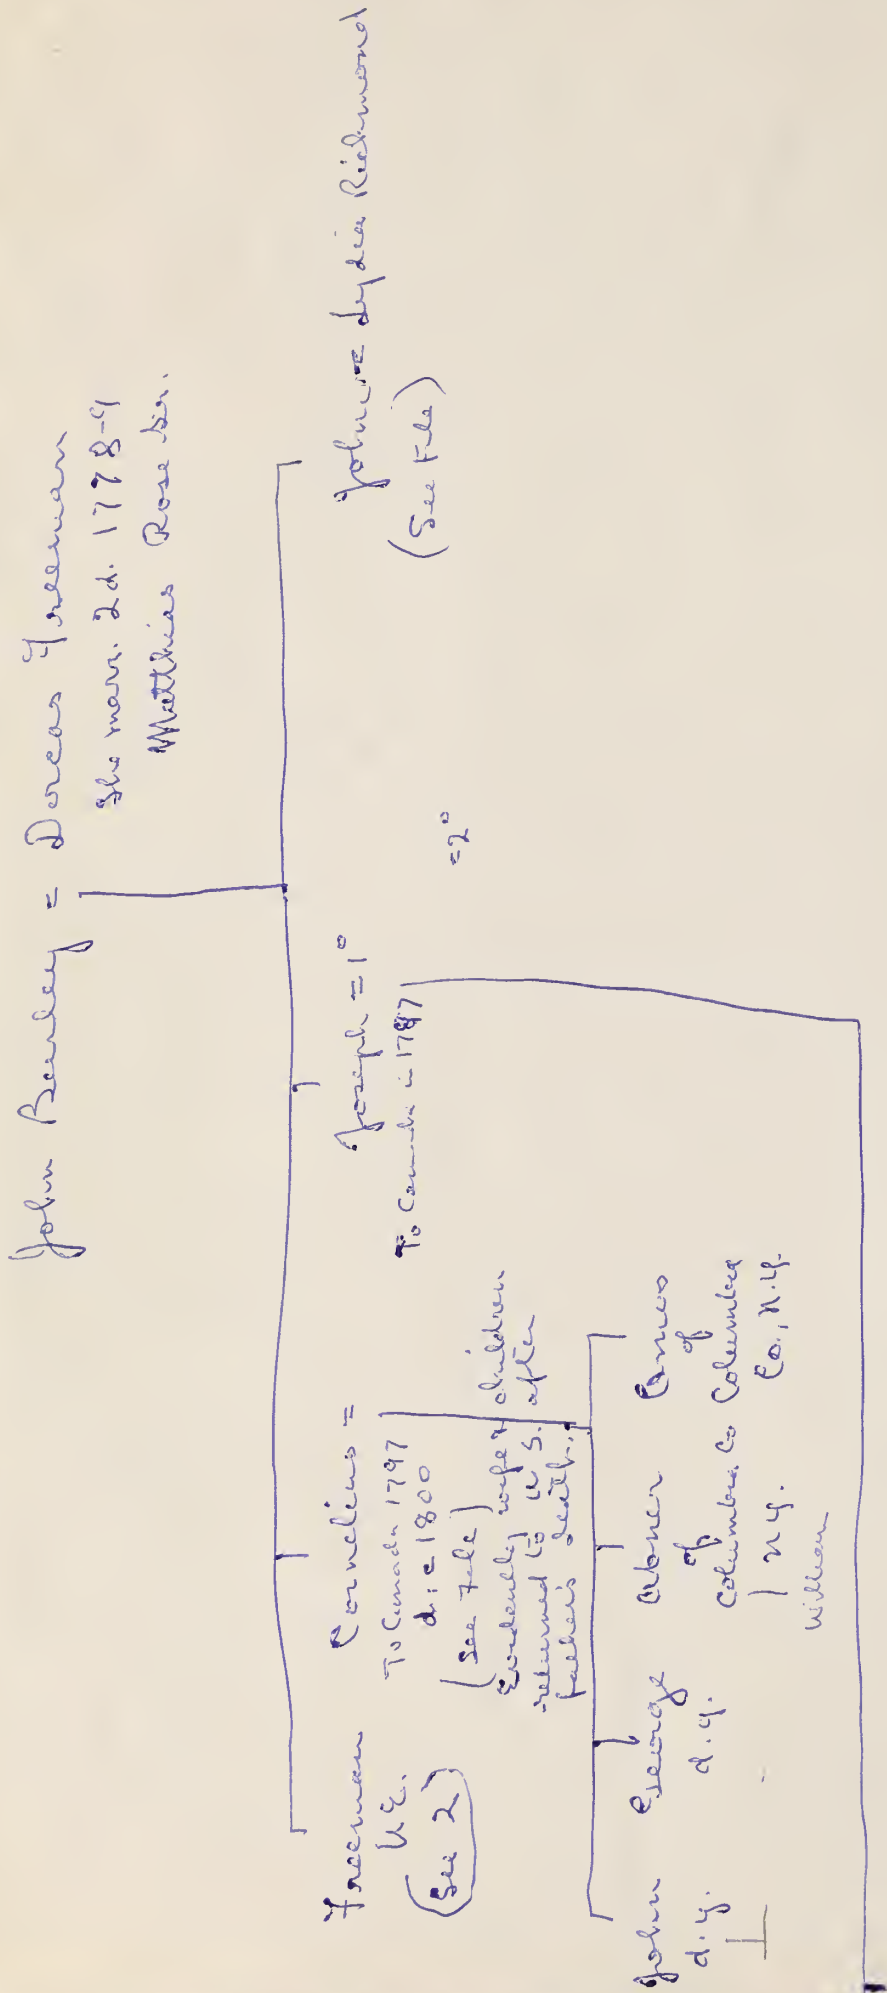 John Bewley = Dorcas Freeman
She marr. 2d. 1778-9
Matthias Rose Sr.
Freeman
U.E.
(See 2)
Cornelius =
To Canada 1797
d. c 1800
(See File)
Evidently wife & children
returned to U.S. after
father's death.
Joseph = 1°
To Canada in 1787
= 2°
John = Lydia Richmond
(See File)
John
d.y.
George
d.y.
Abner
of
Columbia Co
N.Y.
William
Amos
of
Columbia
Co., N.Y.